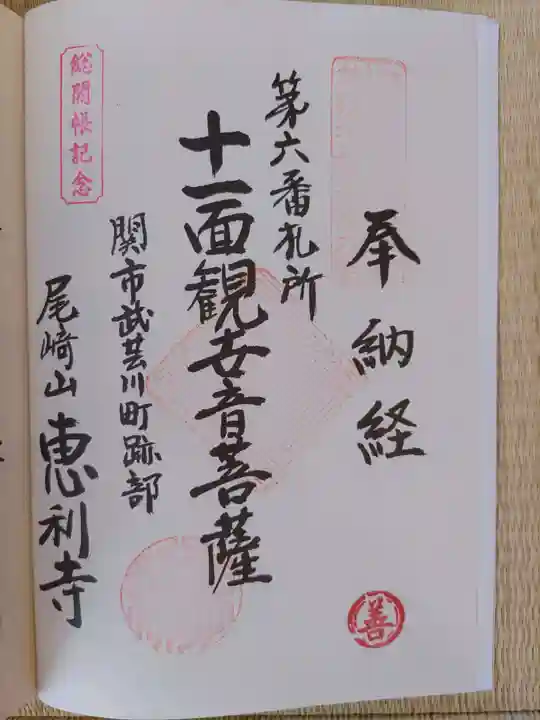 奉納経
第六番札所
十一面観世音菩薩
関市武芸川町跡部
尾崎山恵利寺
総開帳記念
善